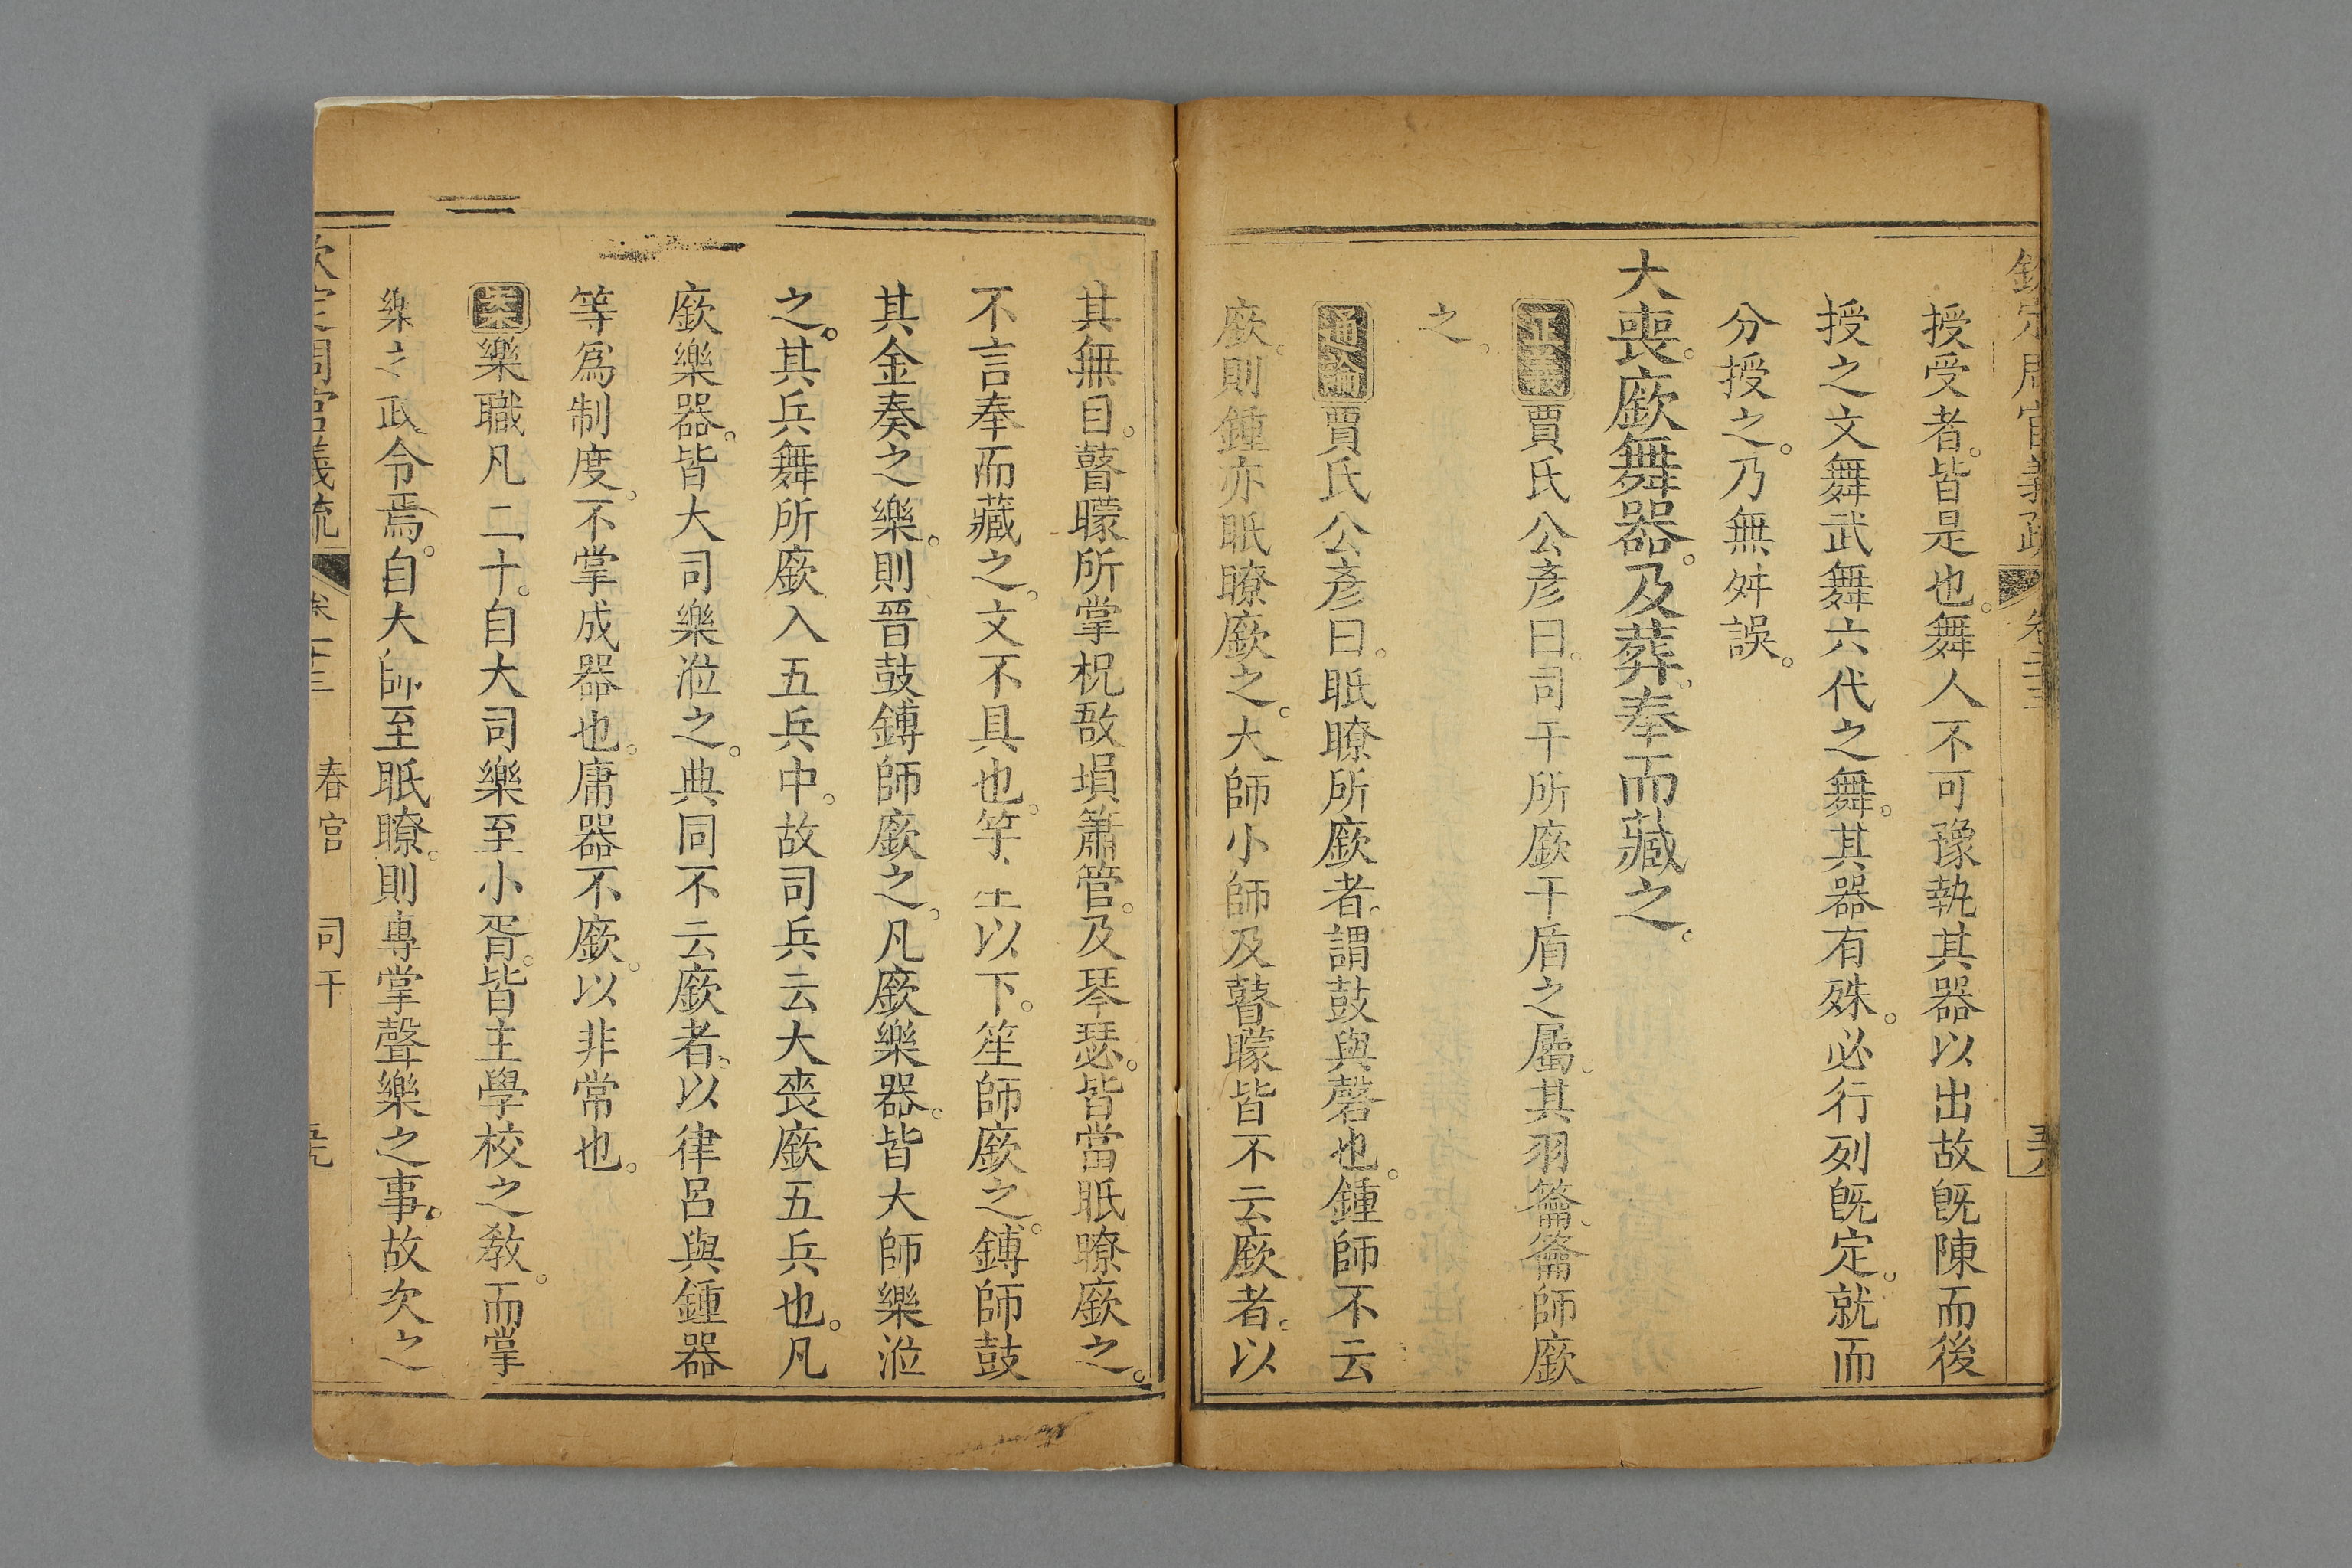 欽定周官義疏 卷三十三
授受者。皆是也。舞人不可豫執其器以出故旣陳而後
授之文舞武舞六代之舞。其器有殊。必行列旣定。就而
分授之。乃無舛誤。
大喪。廞舞器。及葬。奉而藏之。
正義賈氏公彥曰。司干所廞干盾之屬。其羽籥。籥師廞
之。
通論賈氏公彥曰。眂瞭所廞者。謂鼓與磬也。鍾師不云
廞。則鍾亦眂瞭廞之。大師小師及瞽矇皆不云廞者。以
其無目。瞽矇所掌柷敔塤簫管。及琴瑟。皆當眂瞭廞之。
不言奉而藏之。文不具也。竽以下。笙師廞之。鎛師鼓
其金奏之樂。則晉鼓鎛師廞之。凡廞樂器。皆大師樂涖
之。其兵舞所廞入五兵中。故司兵云大喪廞五兵也。凡
廞樂器。皆大司樂涖之。典同不云廞者。以律呂與鍾器
等爲制度。不掌成器也。庸器不廞。以非常也。
案樂職凡二十。自大司樂至小胥。皆主學校之敎。而掌
樂之政令焉。自大師至眂瞭。則專掌聲樂之事。故次之
欽定周官義疏 卷三十三 春官 司干